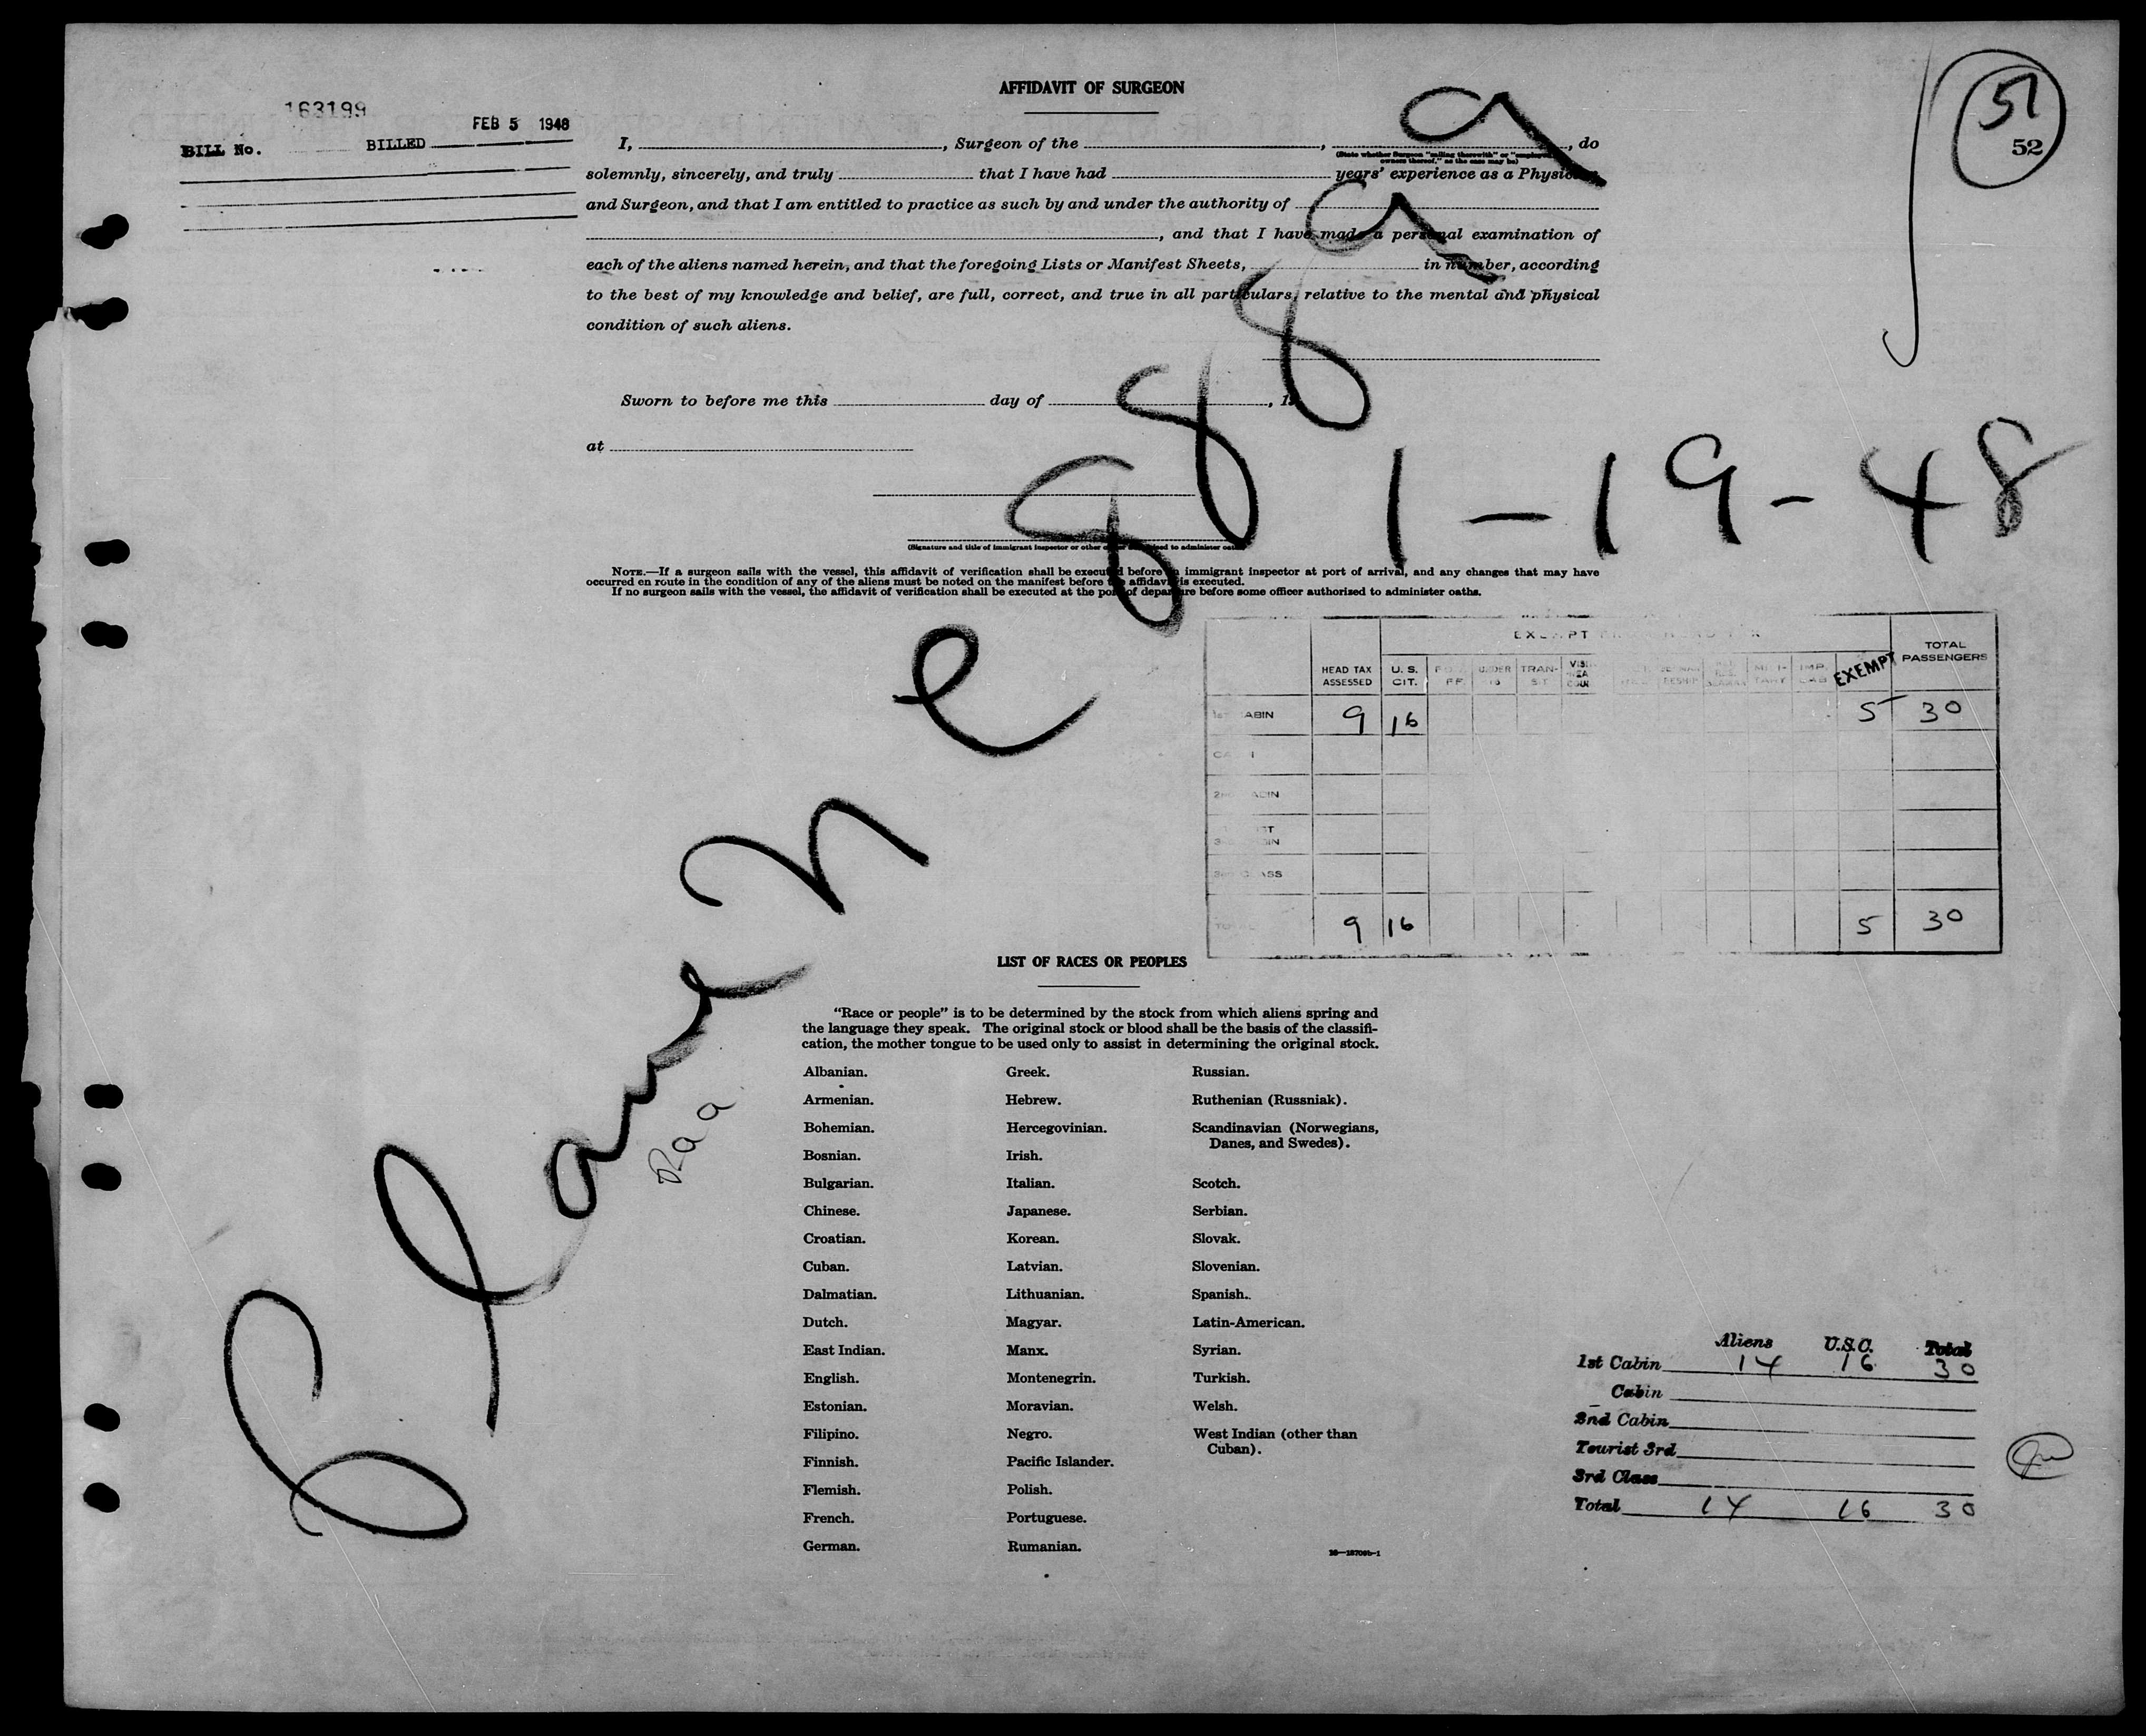 AFFIDAVIT OF SURGEON
163199
BILL No. BILLED FEB 5 1948
51
52
I, , Surgeon of the , , do
(State whether Surgeon "sailing therewith" or "employed
owners thereof," as the case may be)
solemnly, sincerely, and truly that I have had years' experience as a Physician
and Surgeon, and that I am entitled to practice as such by and under the authority of
, and that I have made a personal examination of
each of the aliens named herein, and that the foregoing Lists or Manifest Sheets, in number, according
to the best of my knowledge and belief, are full, correct, and true in all particulars, relative to the mental and physical
condition of such aliens.
Sworn to before me this day of , 19
at
1-19-48
(Signature and title of immigrant inspector or other officer authorized to administer oaths)
NOTE.—If a surgeon sails with the vessel, this affidavit of verification shall be executed before an immigrant inspector at port of arrival, and any changes that may have
occurred en route in the condition of any of the aliens must be noted on the manifest before the affidavit is executed.
If no surgeon sails with the vessel, the affidavit of verification shall be executed at the port of departure before some officer authorized to administer oaths.
Plane 888
EXEMPT
HEAD TAX ASSESSED U. S. CIT. UNDER 16 TRAN- EXEMPT TOTAL PASSENGERS
9 16 5 30
9 16 5 30
LIST OF RACES OR PEOPLES
"Race or people" is to be determined by the stock from which aliens spring and
the language they speak. The original stock or blood shall be the basis of the classifi-
cation, the mother tongue to be used only to assist in determining the original stock.
Albanian. Greek. Russian.
Armenian. Hebrew. Ruthenian (Russniak).
Bohemian. Hercegovinian. Scandinavian (Norwegians,
Danes, and Swedes).
Bosnian. Irish.
Bulgarian. Italian. Scotch.
Chinese. Japanese. Serbian.
Croatian. Korean. Slovak.
Cuban. Latvian. Slovenian.
Dalmatian. Lithuanian. Spanish.
Dutch. Magyar. Latin-American.
East Indian. Manx. Syrian.
English. Montenegrin. Turkish.
Estonian. Moravian. Welsh.
Filipino. Negro. West Indian (other than
Cuban).
Finnish. Pacific Islander.
Flemish. Polish.
French. Portuguese.
German. Rumanian.
Aliens U.S.C. Total
1st Cabin 14 16 30
Cabin
2nd Cabin
Tourist 3rd
3rd Class
Total 14 16 30